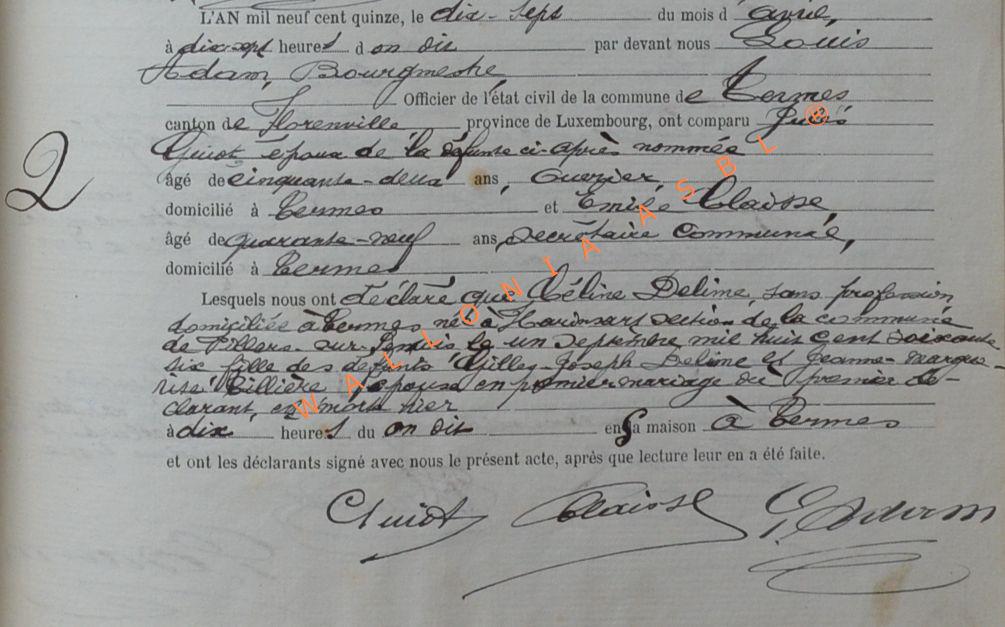 L'AN mil neuf cent quinze, le dix-sept du mois d'avril,
à dix-sept heures d on dit par devant nous Louis
Adam, Bourgmestre,
Officier de l'état civil de la commune de Termes
canton de Florenville province de Luxembourg, ont comparu Jules
Guiot époux de la défunte ci-après nommée
âgé de cinquante-deux ans, ouvrier
domicilié à Termes et Emile Claisse,
âgé de quarante-neuf ans, secrétaire communal,
domicilié à Termes
Lesquels nous ont déclaré que Céline Delime, sans profession
domiciliée à Termes née à section de la commune
de Villers-sur-Semois le un septembre mil huit cent soixante
six fille des défunts Gilles-Joseph Delime et Jeanne-Margue-
rite Billière, épouse en premier mariage du premier dé-
clarant, est morte hier
à dix heures du on dit en sa maison à Termes
et ont les déclarants signé avec nous le présent acte, après que lecture leur en a été faite.
2
Guiot Claisse L Adam
WALLONIA ASBL ®